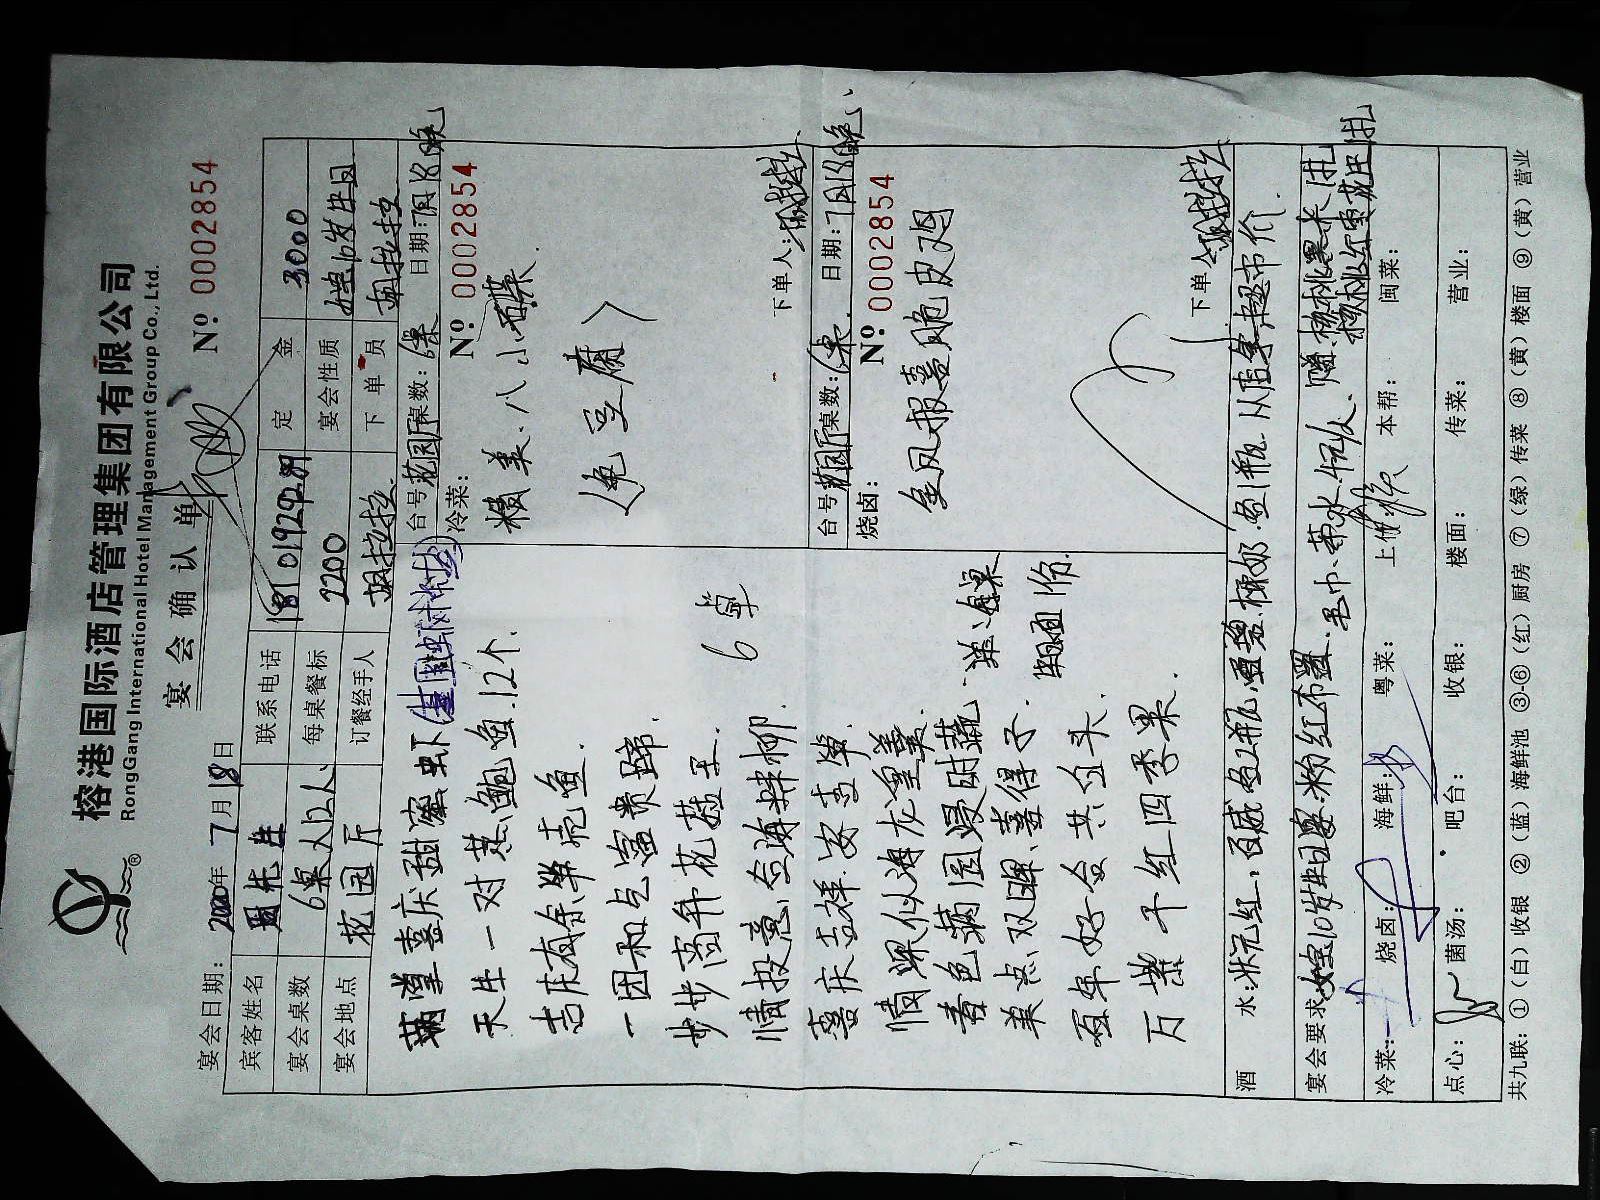 榕港国际酒店管理集团有限公司
RongGang International Hotel Management Group Co., Ltd.
®
宴会确认单
宴会日期：2020年7月18日
Nº 0002854
宾客姓名 周先生 联系电话 定金 3000
宴会桌数 6桌 12人 每桌餐标 2200 宴会性质 10岁生日
宴会地点 花园厅 订餐经手人 胡拉拉 下单员 胡拉拉
满堂喜庆甜蜜虾
天生一对葱鲍鱼.12个.
吉庆有余 鱼
一团和气富贵蹄.
步步高升花菇
情投意合海 柳
6单
喜庆吉祥安
情深似海龙皇羹.
春色满园浸时蔬.
美点双辉.喜得子.
面1份
百年好合共白头.
万紫千红四季果.
台号 花园厅 桌数： 6桌 日期：7月18晚
冷菜：
Nº 0002854
精美八小碟.
豆腐
下单人：胡拉拉
台号 花园厅 桌数： 6桌. 日期：7月18晚.
烧卤：
Nº 0002854
金凤报喜脆皮鸡
下单人：胡拉拉
酒水：状元红， 百威 从店 超市价
宴会要求： 女宝10岁生日宴.粉红布置.毛巾.茶水
赠. 黑米1扎
红枣 1扎
冷菜： 烧卤： 海鲜： 粤菜： 上什： 本帮： 闽菜：
点心： 菌汤： 吧台： 收银： 楼面： 传菜： 营业：
共九联：①（白）收银 ②（蓝）海鲜池 ③-⑥（红）厨房 ⑦（绿）传菜 ⑧（黄）楼面 ⑨（黄）营业